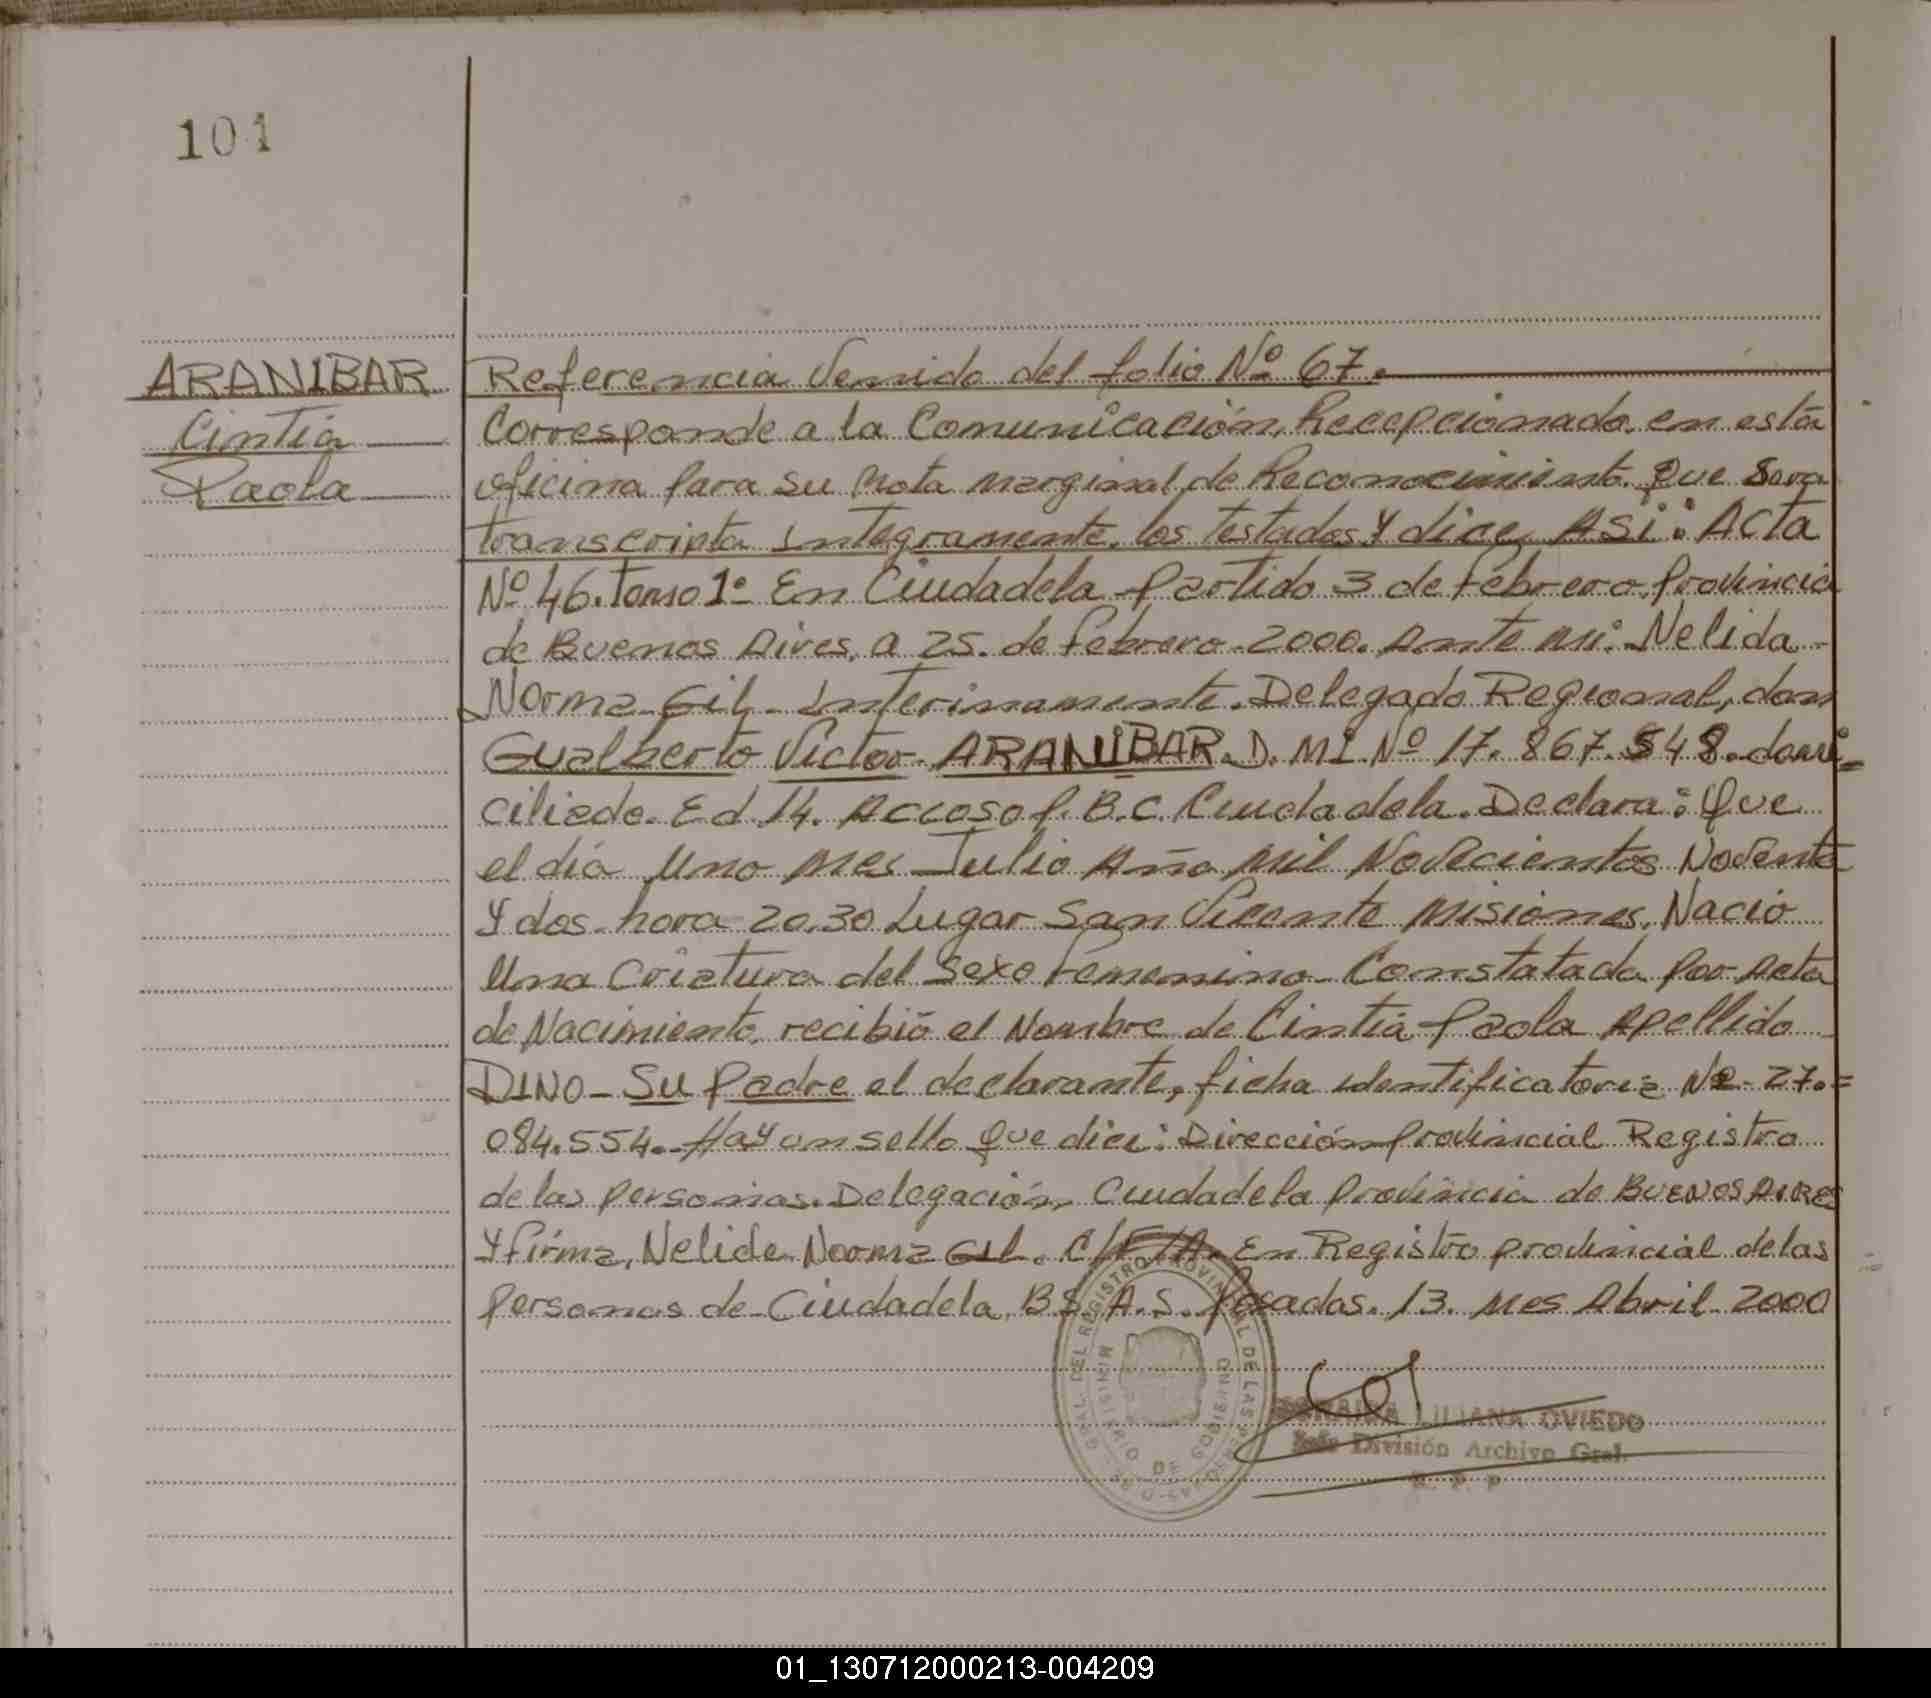 101
ARANIBAR
Cintia
Paola
Referencia Venido del folio Nº 67.
Corresponde a la Comunicación, Recepcionada, en está
oficina para su Nota marginal, de Reconocimiento. Que Sera
transcripta integramente, los testados Y dice, ASi: ACTA
Nº 46. Tomo 1º En Ciudadela Partido 3 de Febrero. Provincia
de Buenos Aires, a 25. de Febrero. 2000. Ante mi: Nelida
Norma Gil. Interinamente. Delegado Regional, don
Gualberto Victor. ARANIBAR. D. MI. Nº 17. 867. 548. domi=
ciliado. Ed 14. ACCESO P. B.C. Ciudadela. Declara: Que
el día Uno Mes Julio Año Mil Novecientos Noventa
Y dos. hora 20.30 Lugar San Vicente Misiones. Nacio
Una Criatura del Sexo Femenino. Constatada Por Acta
de Nacimiento, recibió el Nombre de Cintia Paola Apellido
DINO - Su Padre el declarante, ficha identificatoria Nº 27.=
084.554. Hay un sello Que dice: Dirección Provincial Registro
de las Personas. Delegación, Ciudadela Provincia de BUENOS AIRES
Y firma, Nelida Norma Gil. C/F/A. En Registro provincial de las
Personas de Ciudadela, BS. A.S. Posadas. 13. Mes Abril 2000
GRAL. DEL REGISTRO PROVINCIAL DE LAS PERSONAS
MINISTERIO DE GOBIERNO
LILIANA OVIEDO
Jefe División Archivo Gral.
R. P. P
01_130712000213-004209